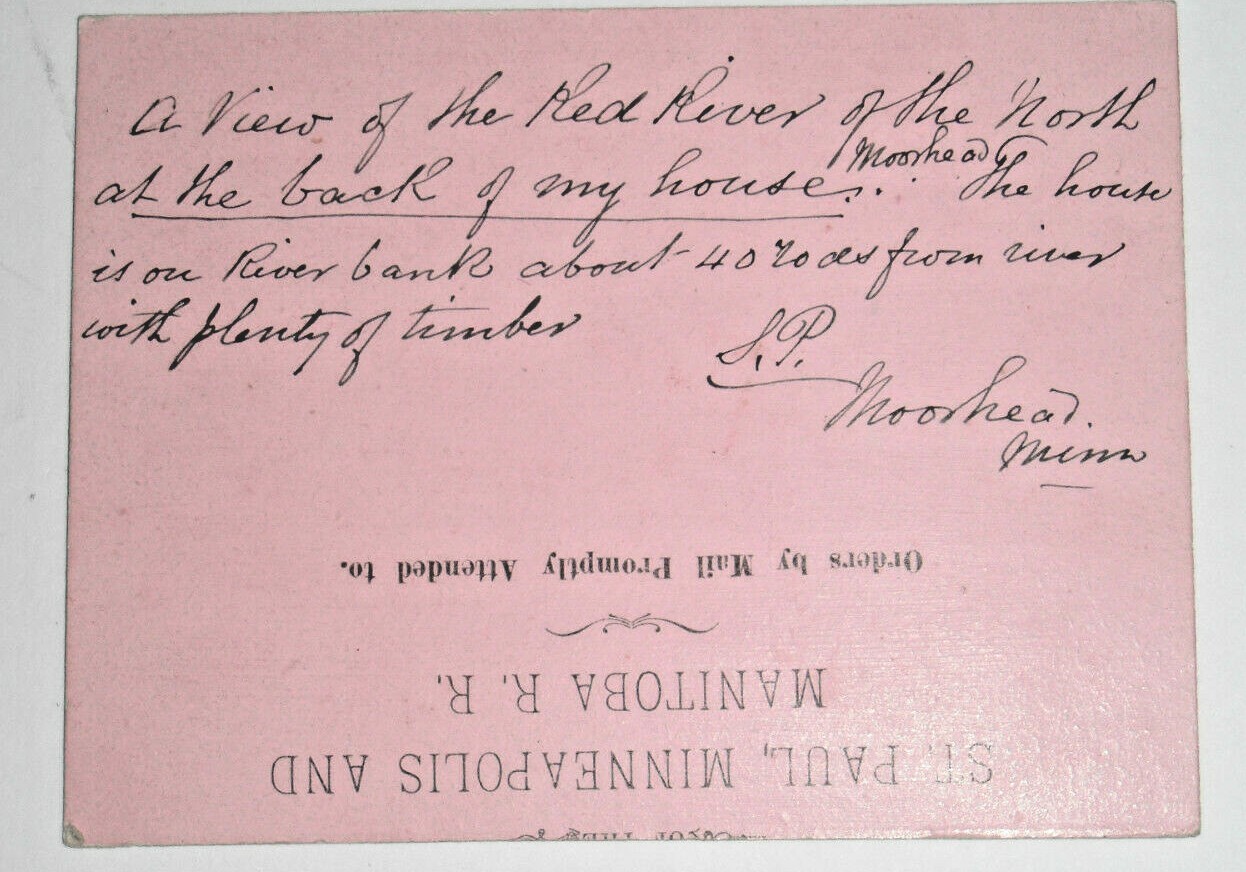 A View of the Red River of the North
Moorhead
at the back of my house. The house
is on River bank about 40 rods from river
with plenty of timber
S.P.
Moorhead.
Minn
Orders by Mail Promptly Attended to.
MANITOBA R. R.
ST. PAUL, MINNEAPOLIS AND
OF THE